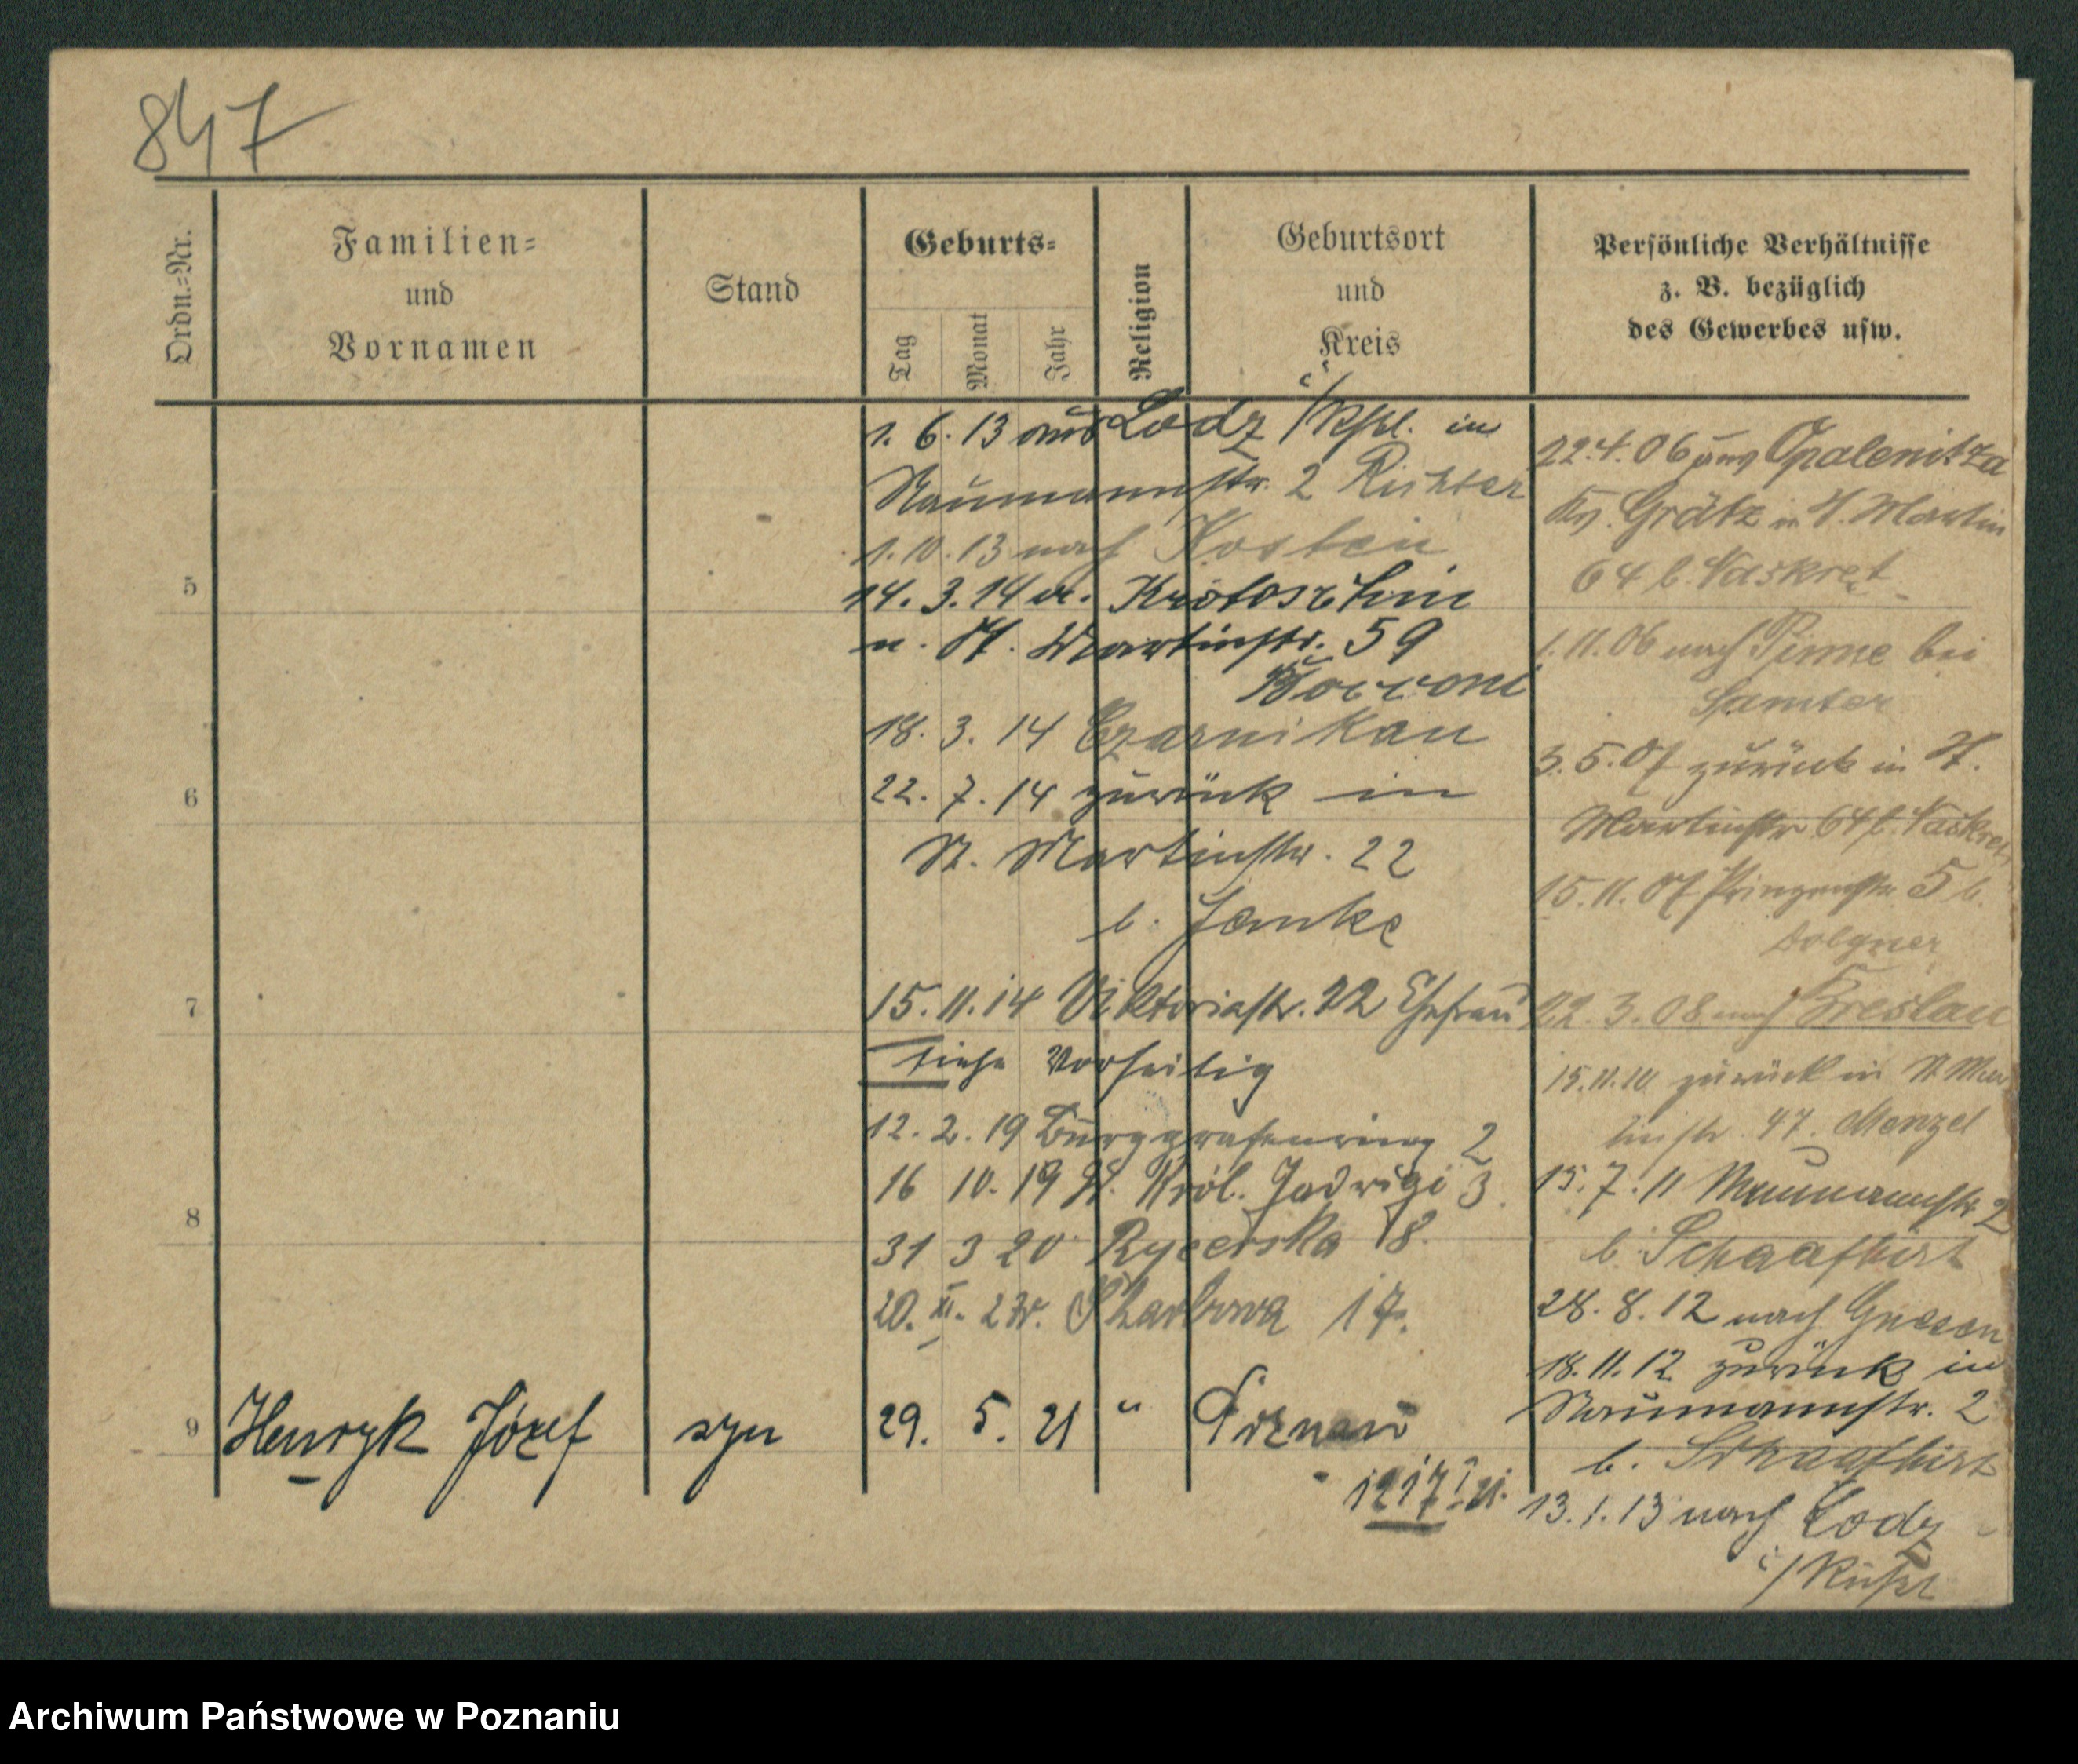 847
Ordn.=Nr.
Familien=
und
Vornamen
Stand
Geburts=
Tag
Monat
Jahr
Religion
Geburtsort
und
Kreis
Persönliche Verhältnisse
z. B. bezüglich
des Gewerbes usw.
1. 6. 13 aus Lodz i/ Rßl. in
Naumannstr. 2 Richter
1. 10. 13 nach Kosten
14. 3. 14 a. Krotoschin
n. St. Martinstr. 59
18. 3. 14 Czarnikau
22. 7. 14 zurück in
St. Martinstr. 22
b. Janke
15. 11. 14 Viktoriastr. 22 Ehefrau
siehe Vorseitig
12. 2. 19 Burggrafenring 2
16 10. 19 Król. Jadwigi 3
31 3 20 Rycerska 18.
20. XI. 2 Skarbowa 17.
5
6
7
8
9 Henryk Józef syn 29. 5. 21 " Poznań
1217
22. 4. 06 aus Opalenitza
Kr. Grätz in St. Martin
64 b. Vaskret
1. 11. 06 nach Pinne bei
Samter
3. 5. 07 zurück in St.
Martinstr 64 b. Vaskret
15. 11. 07 Prinzenstr. 5 b.
Dolgner
22. 3. 08 nach Breslau
15. 11. 10 zurück in St Mar
tinstr. 47. Menzel
15. 7. 11 Naumannstr. 2
b. Schaafhirt
28. 8. 12 nach Gnesen
18. 11. 12 zurück in
Naumannstr. 2
b. Schaafhirt
13. 1. 13 nach Lodz
i/ Rußl
Archiwum Państwowe w Poznaniu